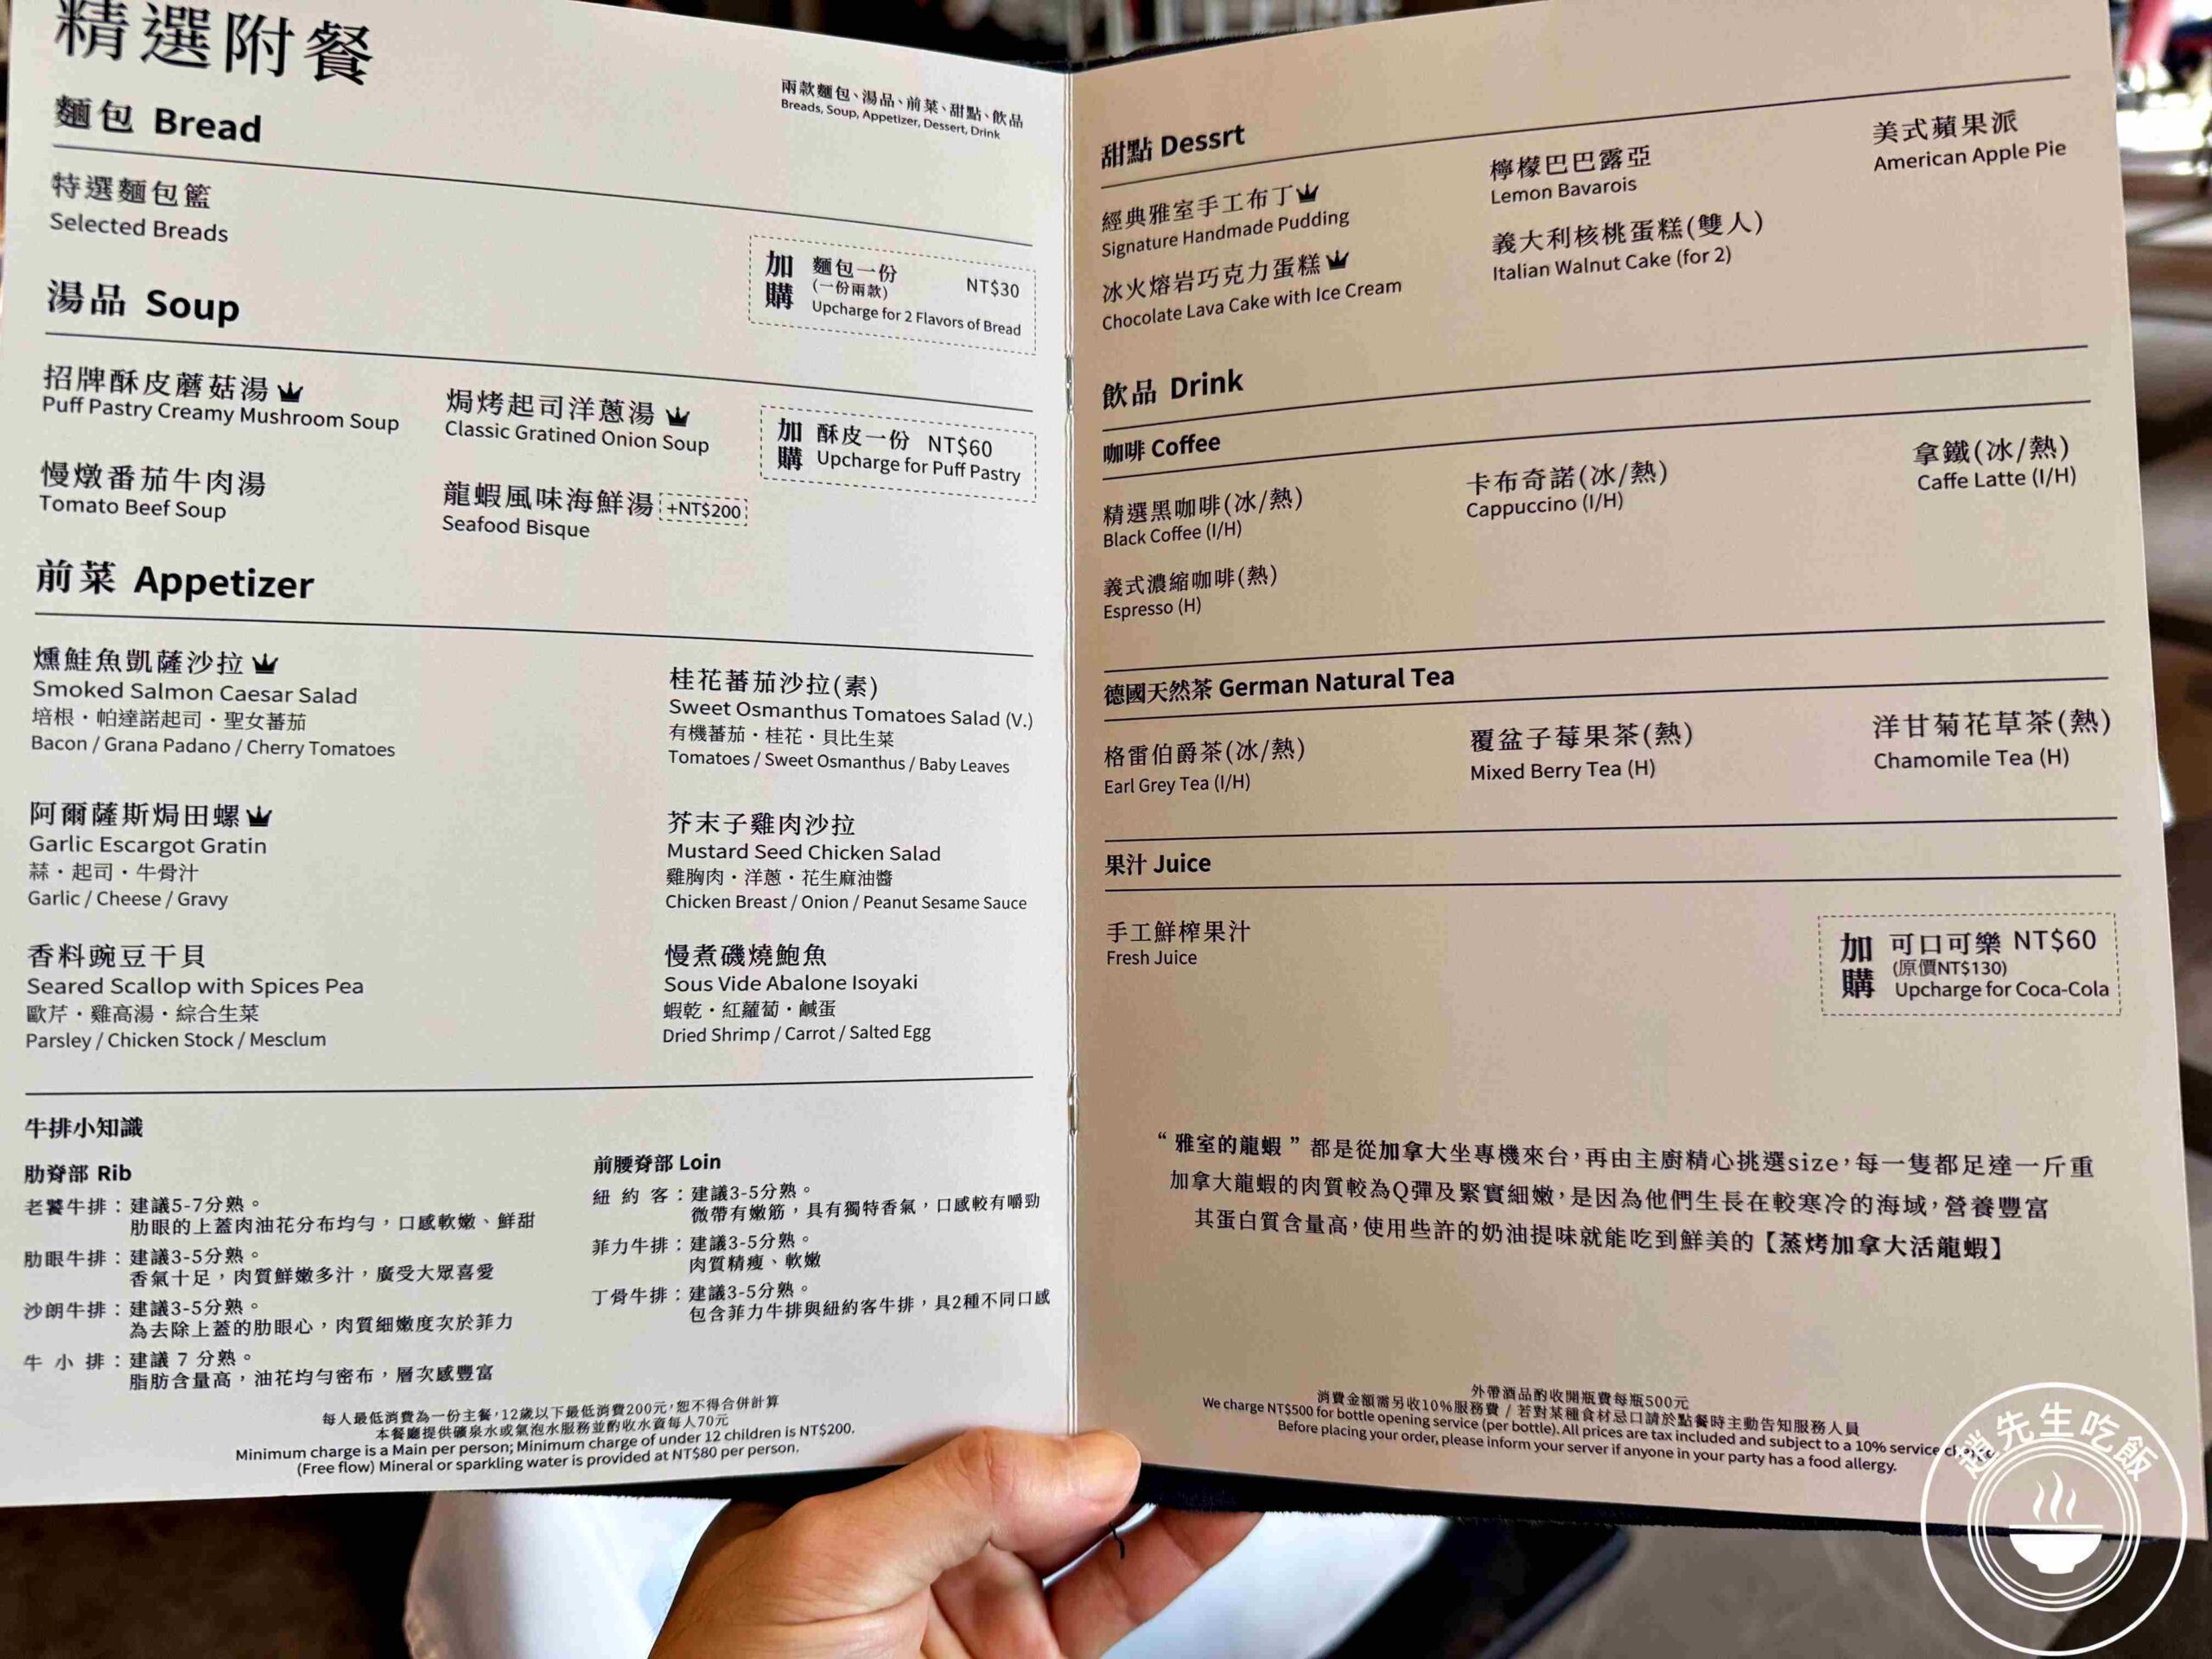 精選附餐
兩款麵包、湯品、前菜、甜點、飲品
Breads, Soup, Appetizer, Dessert, Drink
麵包 Bread
特選麵包籃
Selected Breads
加購 麵包一份 NT$30
(一份兩款)
Upcharge for 2 Flavors of Bread
湯品 Soup
招牌酥皮蘑菇湯
Puff Pastry Creamy Mushroom Soup
焗烤起司洋蔥湯
Classic Gratined Onion Soup
加購 酥皮一份 NT$60
Upcharge for Puff Pastry
慢燉番茄牛肉湯
Tomato Beef Soup
龍蝦風味海鮮湯 +NT$200
Seafood Bisque
前菜 Appetizer
燻鮭魚凱薩沙拉
Smoked Salmon Caesar Salad
培根・帕達諾起司・聖女蕃茄
Bacon / Grana Padano / Cherry Tomatoes
桂花蕃茄沙拉(素)
Sweet Osmanthus Tomatoes Salad (V.)
有機蕃茄・桂花・貝比生菜
Tomatoes / Sweet Osmanthus / Baby Leaves
阿爾薩斯焗田螺
Garlic Escargot Gratin
蒜・起司・牛骨汁
Garlic / Cheese / Gravy
芥末子雞肉沙拉
Mustard Seed Chicken Salad
雞胸肉・洋蔥・花生麻油醬
Chicken Breast / Onion / Peanut Sesame Sauce
香料豌豆干貝
Seared Scallop with Spices Pea
歐芹・雞高湯・綜合生菜
Parsley / Chicken Stock / Mesclum
慢煮磯燒鮑魚
Sous Vide Abalone Isoyaki
蝦乾・紅蘿蔔・鹹蛋
Dried Shrimp / Carrot / Salted Egg
牛排小知識
肋脊部 Rib
老饕牛排：建議5-7分熟。
肋眼的上蓋肉油花分布均勻，口感軟嫩、鮮甜
肋眼牛排：建議3-5分熟。
香氣十足，肉質鮮嫩多汁，廣受大眾喜愛
沙朗牛排：建議3-5分熟。
為去除上蓋的肋眼心，肉質細嫩度次於菲力
牛 小 排：建議 7 分熟。
脂肪含量高，油花均勻密布，層次感豐富
前腰脊部 Loin
紐 約 客：建議3-5分熟。
微帶有嫩筋，具有獨特香氣，口感較有嚼勁
菲力牛排：建議3-5分熟。
肉質精瘦、軟嫩
丁骨牛排：建議3-5分熟。
包含菲力牛排與紐約客牛排，具2種不同口感
每人最低消費為一份主餐，12歲以下最低消費200元，恕不得合併計算
本餐廳提供礦泉水或氣泡水服務並酌收水資每人70元
Minimum charge is a Main per person; Minimum charge of under 12 children is NT$200.
(Free flow) Mineral or sparkling water is provided at NT$80 per person.
甜點 Dessrt
經典雅室手工布丁
Signature Handmade Pudding
檸檬巴巴露亞
Lemon Bavarois
美式蘋果派
American Apple Pie
冰火熔岩巧克力蛋糕
Chocolate Lava Cake with Ice Cream
義大利核桃蛋糕(雙人)
Italian Walnut Cake (for 2)
飲品 Drink
咖啡 Coffee
精選黑咖啡(冰/熱)
Black Coffee (I/H)
卡布奇諾(冰/熱)
Cappuccino (I/H)
拿鐵(冰/熱)
Caffe Latte (I/H)
義式濃縮咖啡(熱)
Espresso (H)
德國天然茶 German Natural Tea
格雷伯爵茶(冰/熱)
Earl Grey Tea (I/H)
覆盆子莓果茶(熱)
Mixed Berry Tea (H)
洋甘菊花草茶(熱)
Chamomile Tea (H)
果汁 Juice
手工鮮榨果汁
Fresh Juice
加購 可口可樂 NT$60
(原價NT$130)
Upcharge for Coca-Cola
“ 雅室的龍蝦 ” 都是從加拿大坐專機來台，再由主廚精心挑選size，每一隻都足達一斤重
加拿大龍蝦的肉質較為Q彈及緊實細嫩，是因為他們生長在較寒冷的海域，營養豐富
其蛋白質含量高，使用些許的奶油提味就能吃到鮮美的【蒸烤加拿大活龍蝦】
外帶酒品酌收開瓶費每瓶500元
消費金額需另收10%服務費 / 若對某種食材忌口請於點餐時主動告知服務人員
We charge NT$500 for bottle opening service (per bottle). All prices are tax included and subject to a 10% service
Before placing your order, please inform your server if anyone in your party has a food allergy.
趙先生吃飯